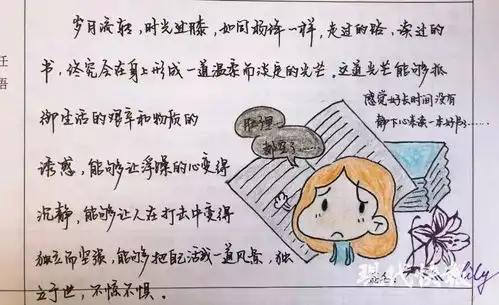 岁月流转，时光过隙，如同杨绛一样，走过的路，读过的
书，终究会在身上形成一道温柔而淡定的光芒。这道光芒能够抵
御生活的艰辛和物质的
诱惑，能够让浮躁的心变得
沉静，能够让人在打击中变得
独立而坚强，能够把自己活成一道风景，独
立于世，不惊不惧。
感觉好长时间没有
静下心来读一本好书……
肚子里
都空了……
寄语
现代快报
lily